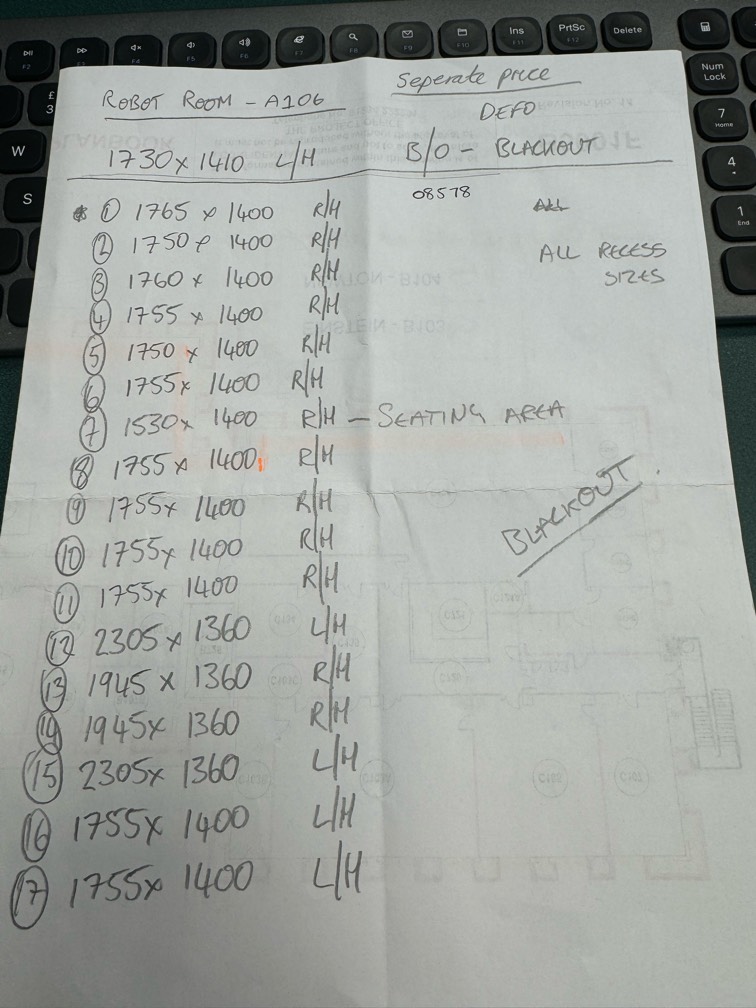 ROBOT ROOM - A106
Seperate price
DEFO
1730 x 1410 L/H
B/O - BLACKOUT
08578
① 1765 x 1400 R/H
ALL
② 1750 x 1400 R/H
ALL RECESS
SIZES
③ 1760 x 1400 R/H
④ 1755 x 1400 R/H
⑤ 1750 x 1400 R/H
⑥ 1755 x 1400 R/H
⑦ 1530 x 1400 R/H - SEATING AREA
⑧ 1755 x 1400 R/H
⑨ 1755 x 1400 R/H
BLACKOUT
⑩ 1755 x 1400 R/H
⑪ 1755 x 1400 R/H
⑫ 2305 x 1360 L/H
⑬ 1945 x 1360 R/H
⑭ 1945 x 1360 R/H
⑮ 2305 x 1360 L/H
⑯ 1755 x 1400 L/H
⑰ 1755 x 1400 L/H
Ins
PrtSc
Delete
Num
Lock
£
3
7
Home
W
4
S
1
End